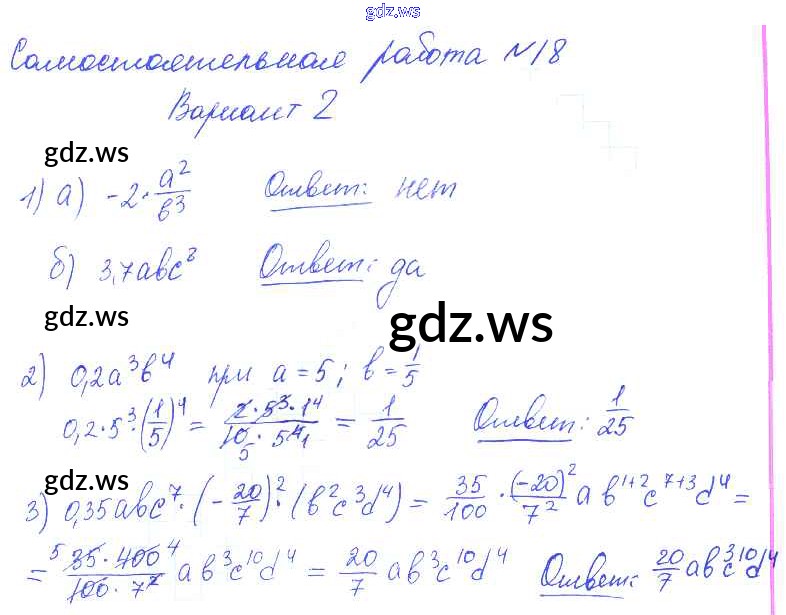 gdz.ws
Самостоятельная работа №18
Вариант 2
gdz.ws
1) а) -2·a²/b³ Ответ: нет
б) 3,7abc⁸ Ответ: да
gdz.ws
gdz.ws
2) 0,2a³b⁴ при a=5; b=1/5
0,2·5³·(1/5)⁴ = 2·5³·1⁴/10·5⁴ = 1/25 Ответ: 1/25
gdz.ws
3) 0,35abc⁷·(-20/7)²·(b²c³d⁴) = 35/100·(-20)²/7² ab¹⁺²c⁷⁺³d⁴ =
= 35·400/100·7² ab³c¹⁰d⁴ = 20/7 ab³c¹⁰d⁴ Ответ: 20/7 ab³c¹⁰d⁴